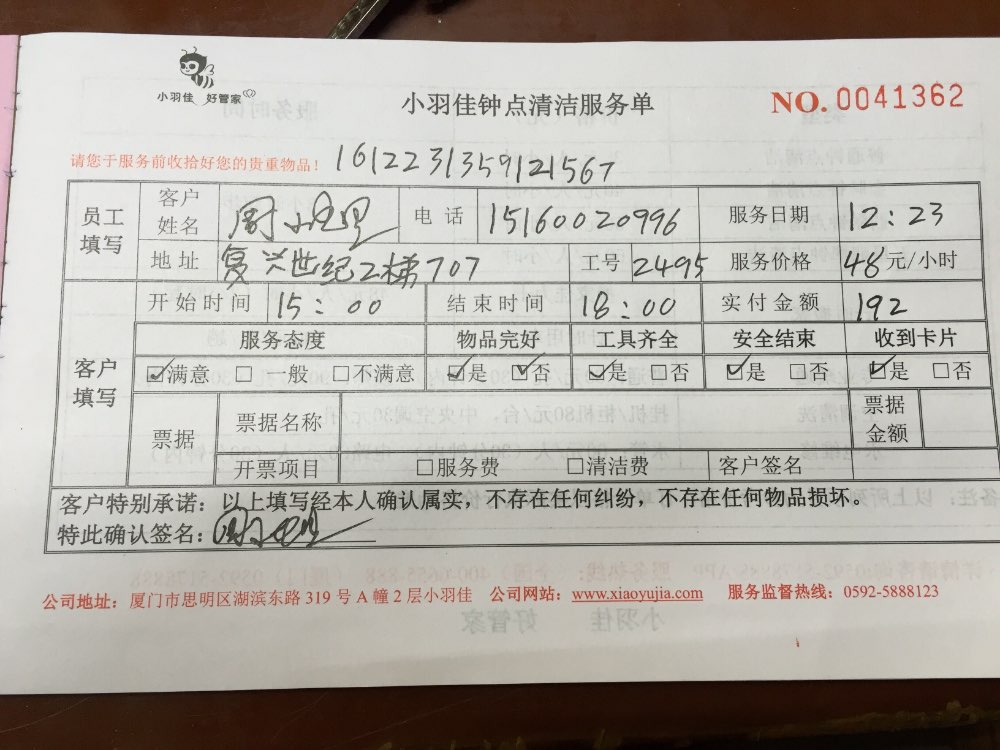 小羽佳 好管家
小羽佳钟点清洁服务单
NO. 0041362
请您于服务前收拾好您的贵重物品！ 1612231359121567
员工填写 客户姓名 周 电话 15160020996 服务日期 12：23
地址 复兴世纪2梯707 工号 2495 服务价格 48元/小时
客户填写 开始时间 15：00 结束时间 18：00 实付金额 192
服务态度 物品完好 工具齐全 安全结束 收到卡片
☑满意 □一般 □不满意 ☑是 ☑否 ☑是 □否 ☑是 □否 ☑是 □否
票据 票据名称 票据金额
开票项目 □服务费 □清洁费 客户签名
客户特别承诺：以上填写经本人确认属实，不存在任何纠纷，不存在任何物品损坏。
特此确认签名：周
公司地址：厦门市思明区湖滨东路 319 号 A 幢 2 层小羽佳 公司网站：www.xiaoyujia.com 服务监督热线：0592-5888123